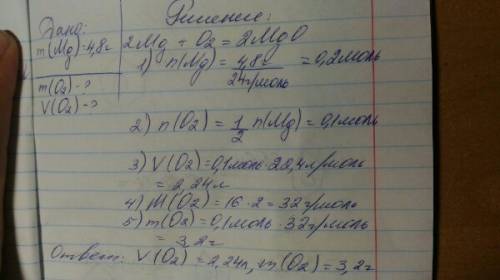 Решение:
Дано:
m(Mg)=4,8г
m(O2)-?
V(O2)-?
2Mg + O2 = 2MgO
1) n(Mg) = 4,8г / 24г/моль = 0,2моль
2) n(O2) = 1/2 n(Mg) = 0,1моль
3) V(O2) = 0,1моль · 22,4л/моль
= 2,24л
4) M(O2) = 16 · 2 = 32г/моль
5) m(O2) = 0,1моль · 32г/моль
= 3,2г
Ответ: V(O2) = 2,24л, m(O2) = 3,2г